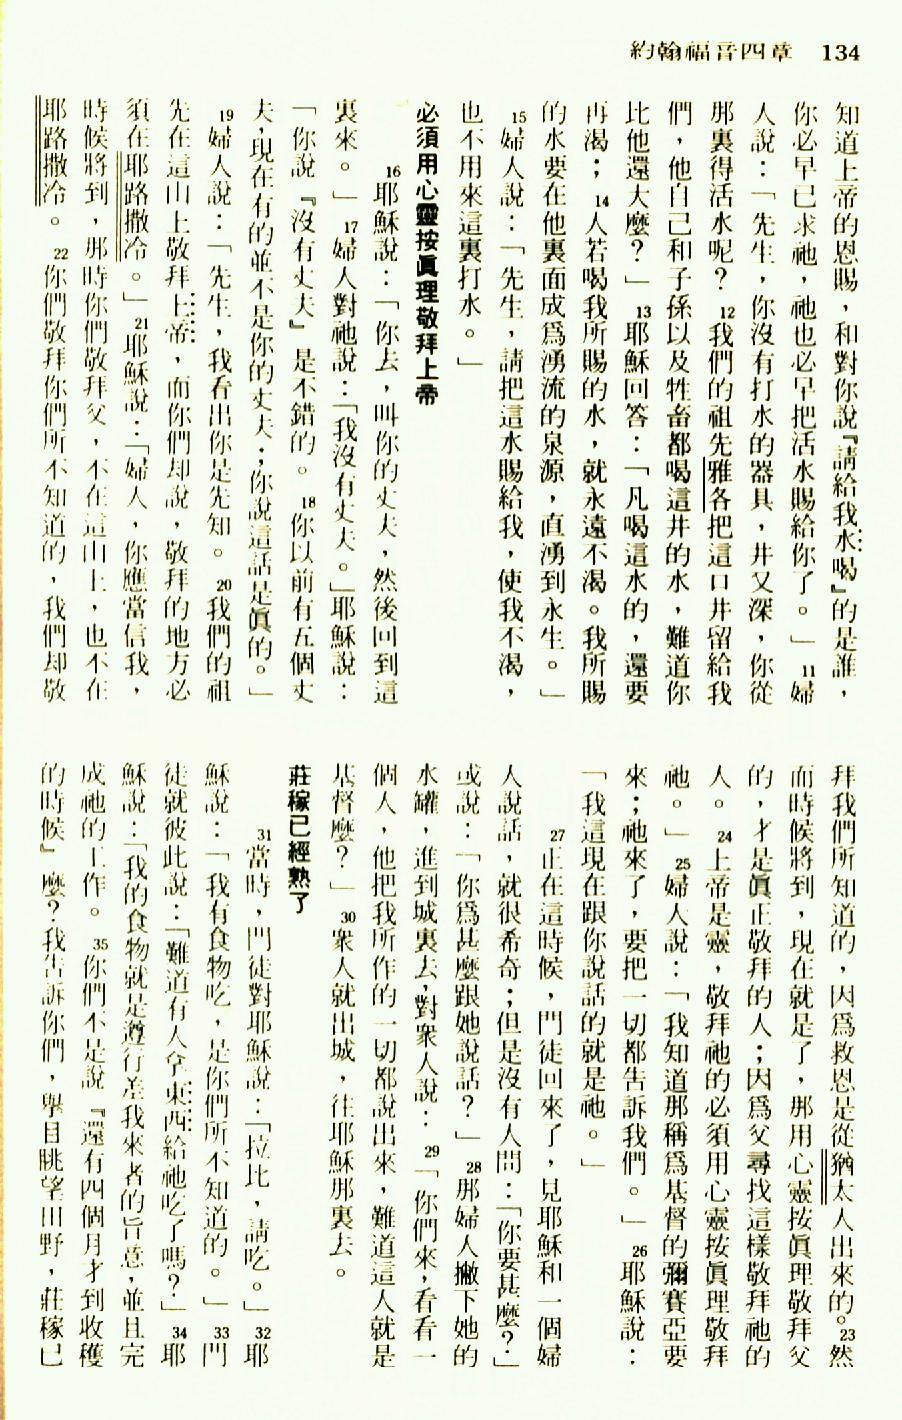 約翰福音四章　134
知道上帝的恩賜，和對你說『請給我水喝』的是誰，
你必早已求祂，祂也必早把活水賜給你了。」11婦
人說：「先生，你沒有打水的器具，井又深，你從
那裏得活水呢？12我們的祖先雅各把這口井留給我
們，他自己和子孫以及牲畜都喝這井的水，難道你
比他還大麼？」13耶穌回答：「凡喝這水的，還要
再渴；14人若喝我所賜的水，就永遠不渴。我所賜
的水要在他裏面成爲湧流的泉源，直湧到永生。」
15婦人說：「先生，請把這水賜給我，使我不渴，
也不用來這裏打水。」
必須用心靈按眞理敬拜上帝
16耶穌說：「你去，叫你的丈夫，然後回到這
裏來。」17婦人對祂說：「我沒有丈夫。」耶穌說：
「你說『沒有丈夫』是不錯的。18你以前有五個丈
夫，現在有的並不是你的丈夫；你說這話是眞的。」
19婦人說：「先生，我看出你是先知。20我們的祖
先在這山上敬拜上帝，而你們却說，敬拜的地方必
須在耶路撒冷。」21耶穌說：「婦人，你應當信我，
時候將到，那時你們敬拜父，不在這山上，也不在
耶路撒冷。22你們敬拜你們所不知道的，我們却敬
拜我們所知道的，因爲救恩是從猶太人出來的。23然
而時候將到，現在就是了，那用心靈按眞理敬拜父
的，才是眞正敬拜的人；因爲父尋找這樣敬拜祂的
人。24上帝是靈，敬拜祂的必須用心靈按眞理敬拜
祂。」25婦人說：「我知道那稱爲基督的彌賽亞要
來；祂來了，要把一切都告訴我們。」26耶穌說：
「我這現在跟你說話的就是祂。」
27正在這時候，門徒回來了，見耶穌和一個婦
人說話，就很希奇；但是沒有人問：「你要甚麼？」
或說：「你爲甚麼跟她說話？」28那婦人撇下她的
水罐，進到城裏去，對衆人說：29「你們來，看看一
個人，他把我所作的一切都說出來，難道這人就是
基督麼？」30衆人就出城，往耶穌那裏去。
莊稼已經熟了
31當時，門徒對耶穌說：「拉比，請吃。」32耶
穌說：「我有食物吃，是你們所不知道的。」33門
徒就彼此說：「難道有人拿東西給祂吃了嗎？」34耶
穌說：「我的食物就是遵行差我來者的旨意，並且完
成祂的工作。35你們不是說『還有四個月才到收穫
的時候』麼？我告訴你們，舉目眺望田野，莊稼已